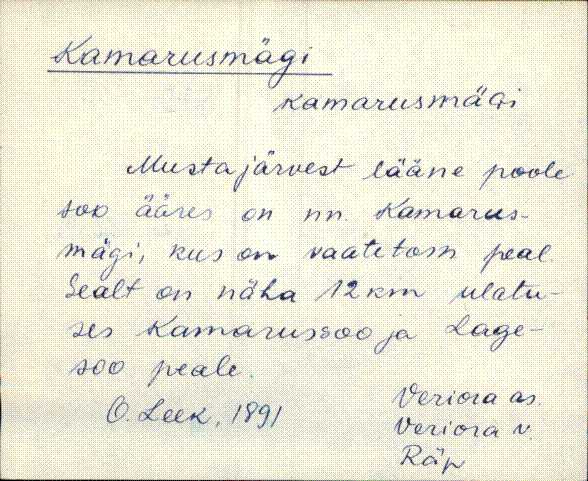 Kamarusmägi
kamarusmägi
Mustajärvest lääne poole
soo ääres on nn. Kamarus-
mägi, kus on vaatetorn peal.
Sealt on näha 12 km ulatu-
ses Kamarussoo ja Lage-
soo peale.
O. Leek, 1891
Veriora as.
Veriora v.
Räp